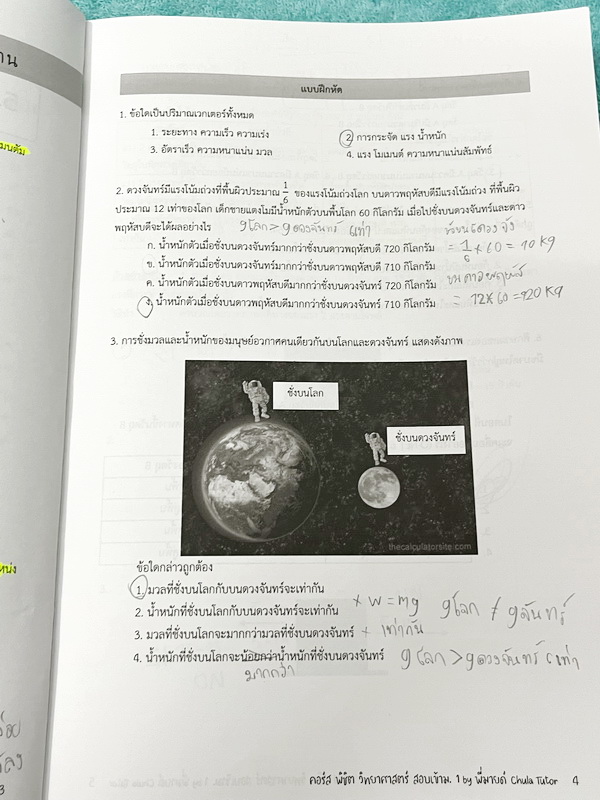 าน
มนตัม
แบบฝึกหัด
1. ข้อใดเป็นปริมาณเวกเตอร์ทั้งหมด
1. ระยะทาง ความเร็ว ความเร่ง
2. การกระจัด แรง น้ำหนัก
3. อัตราเร็ว ความหนาแน่น มวล
4. แรง โมเมนต์ ความหนาแน่นสัมพัทธ์
2. ดวงจันทร์มีแรงโน้มถ่วงที่พื้นผิวประมาณ 1/6 ของแรงโน้มถ่วงโลก บนดาวพฤหัสบดีมีแรงโน้มถ่วง ที่พื้นผิว
ประมาณ 12 เท่าของโลก เด็กชายแตงโมมีน้ำหนักตัวบนพื้นโลก 60 กิโลกรัม เมื่อไปชั่งบนดวงจันทร์และดาว
พฤหัสบดีจะได้ผลอย่างไร
gโลก > gดวงจันทร์ 6 เท่า
ก. น้ำหนักตัวเมื่อชั่งบนดวงจันทร์มากกว่าชั่งบนดาวพฤหัสบดี 720 กิโลกรัม
= 1/6 × 60 = 10 kg
ข. น้ำหนักตัวเมื่อชั่งบนดวงจันทร์มากกว่าชั่งบนดาวพฤหัสบดี 710 กิโลกรัม
ค. น้ำหนักตัวเมื่อชั่งบนดาวพฤหัสบดีมากกว่าชั่งบนดวงจันทร์ 720 กิโลกรัม
ง. น้ำหนักตัวเมื่อชั่งบนดาวพฤหัสบดีมากกว่าชั่งบนดวงจันทร์ 710 กิโลกรัม
= 12 × 60 = 720 kg
3. การชั่งมวลและน้ำหนักของมนุษย์อวกาศคนเดียวกันบนโลกและดวงจันทร์ แสดงดังภาพ
ชั่งบนโลก
ชั่งบนดวงจันทร์
thecalculatorsite.com
ข้อใดกล่าวถูกต้อง
1. มวลที่ชั่งบนโลกกับบนดวงจันทร์จะเท่ากัน
2. น้ำหนักที่ชั่งบนโลกกับบนดวงจันทร์จะเท่ากัน
× W = mg gโลก ≠ gจันทร์
3. มวลที่ชั่งบนโลกจะมากกว่ามวลที่ชั่งบนดวงจันทร์
× เท่ากัน
4. น้ำหนักที่ชั่งบนโลกจะน้อยกว่าน้ำหนักที่ชั่งบนดวงจันทร์
gโลก > gดวงจันทร์ 6 เท่า
มากกว่า
คอร์ส พิชิต วิทยาศาสตร์ สอบเข้าม. 1 by พี่มายด์ Chula Tutor 4